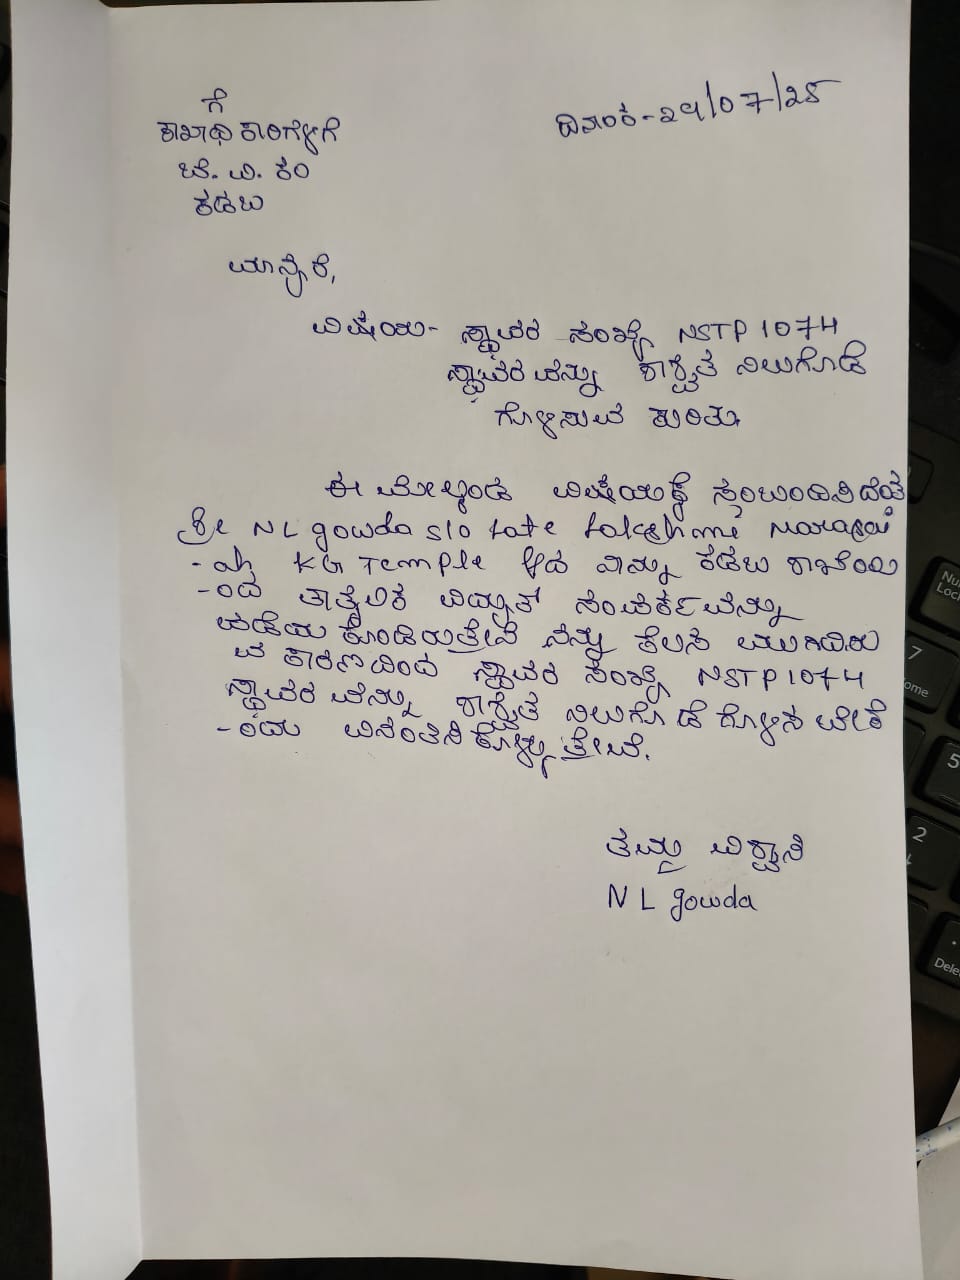 ಗೆ
ಶಾಖಾಧಿಕಾರಿಗಳಿಗೆ
ಬೆ. ವಿ. ಕಂ
ಕಡಬ
ದಿನಾಂಕ-24/07/25
ಮಾನ್ಯರೆ,
ವಿಷಯ- ಸ್ಥಾವರ ಸಂಖ್ಯೆ NSTP1074
ಸ್ಥಾವರವನ್ನು ಶಾಶ್ವತ ನಿಲುಗೊಡೆ
ಗೊಳಿಸುವ ಕುರಿತು
ಈ ಮೇಲ್ಕಂಡ ವಿಷಯಕ್ಕೆ ಸಂಬಂದಿಸಿದಂತೆ
ಶ್ರೀ NL gowda s/o late lakshmi Narasai
-ah KG Temple ಆದ ನಾನು ಕಡಬ ಶಾಖೆಯ
-ಿಂದ ತಾತ್ಕಲಿಕ ವಿದ್ಯುತ್ ಸಂಪರ್ಕವನ್ನು
ಪಡೆದು ಕೊಂಡಿರುತ್ತೇವೆ ನನ್ನ ಕೆಲಸ ಮುಗಿದಿರು
ವ ಕಾರಣದಿಂದ ಸ್ಥಾವರ ಸಂಖ್ಯೆ NSTP1074
ಸ್ಥಾವರವನ್ನು ಶಾಶ್ವತ ನಿಲುಗೊಡೆಗೊಳಿಸಬೇಕೆ
-ಂದು ವಿನಂತಿಸಿಕೊಳ್ಳುತ್ತೇವೆ.
ತಮ್ಮ ವಿಶ್ವಾಸಿ
N L gowda